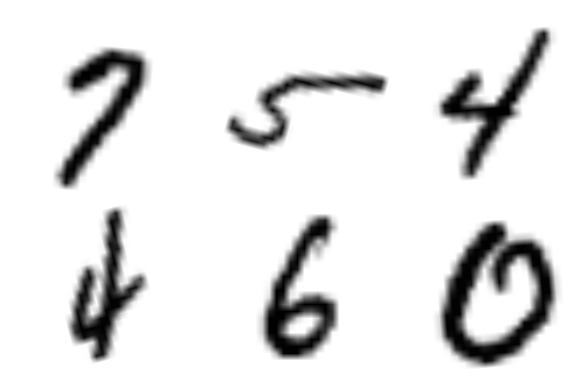 7 5 4
4 6 0